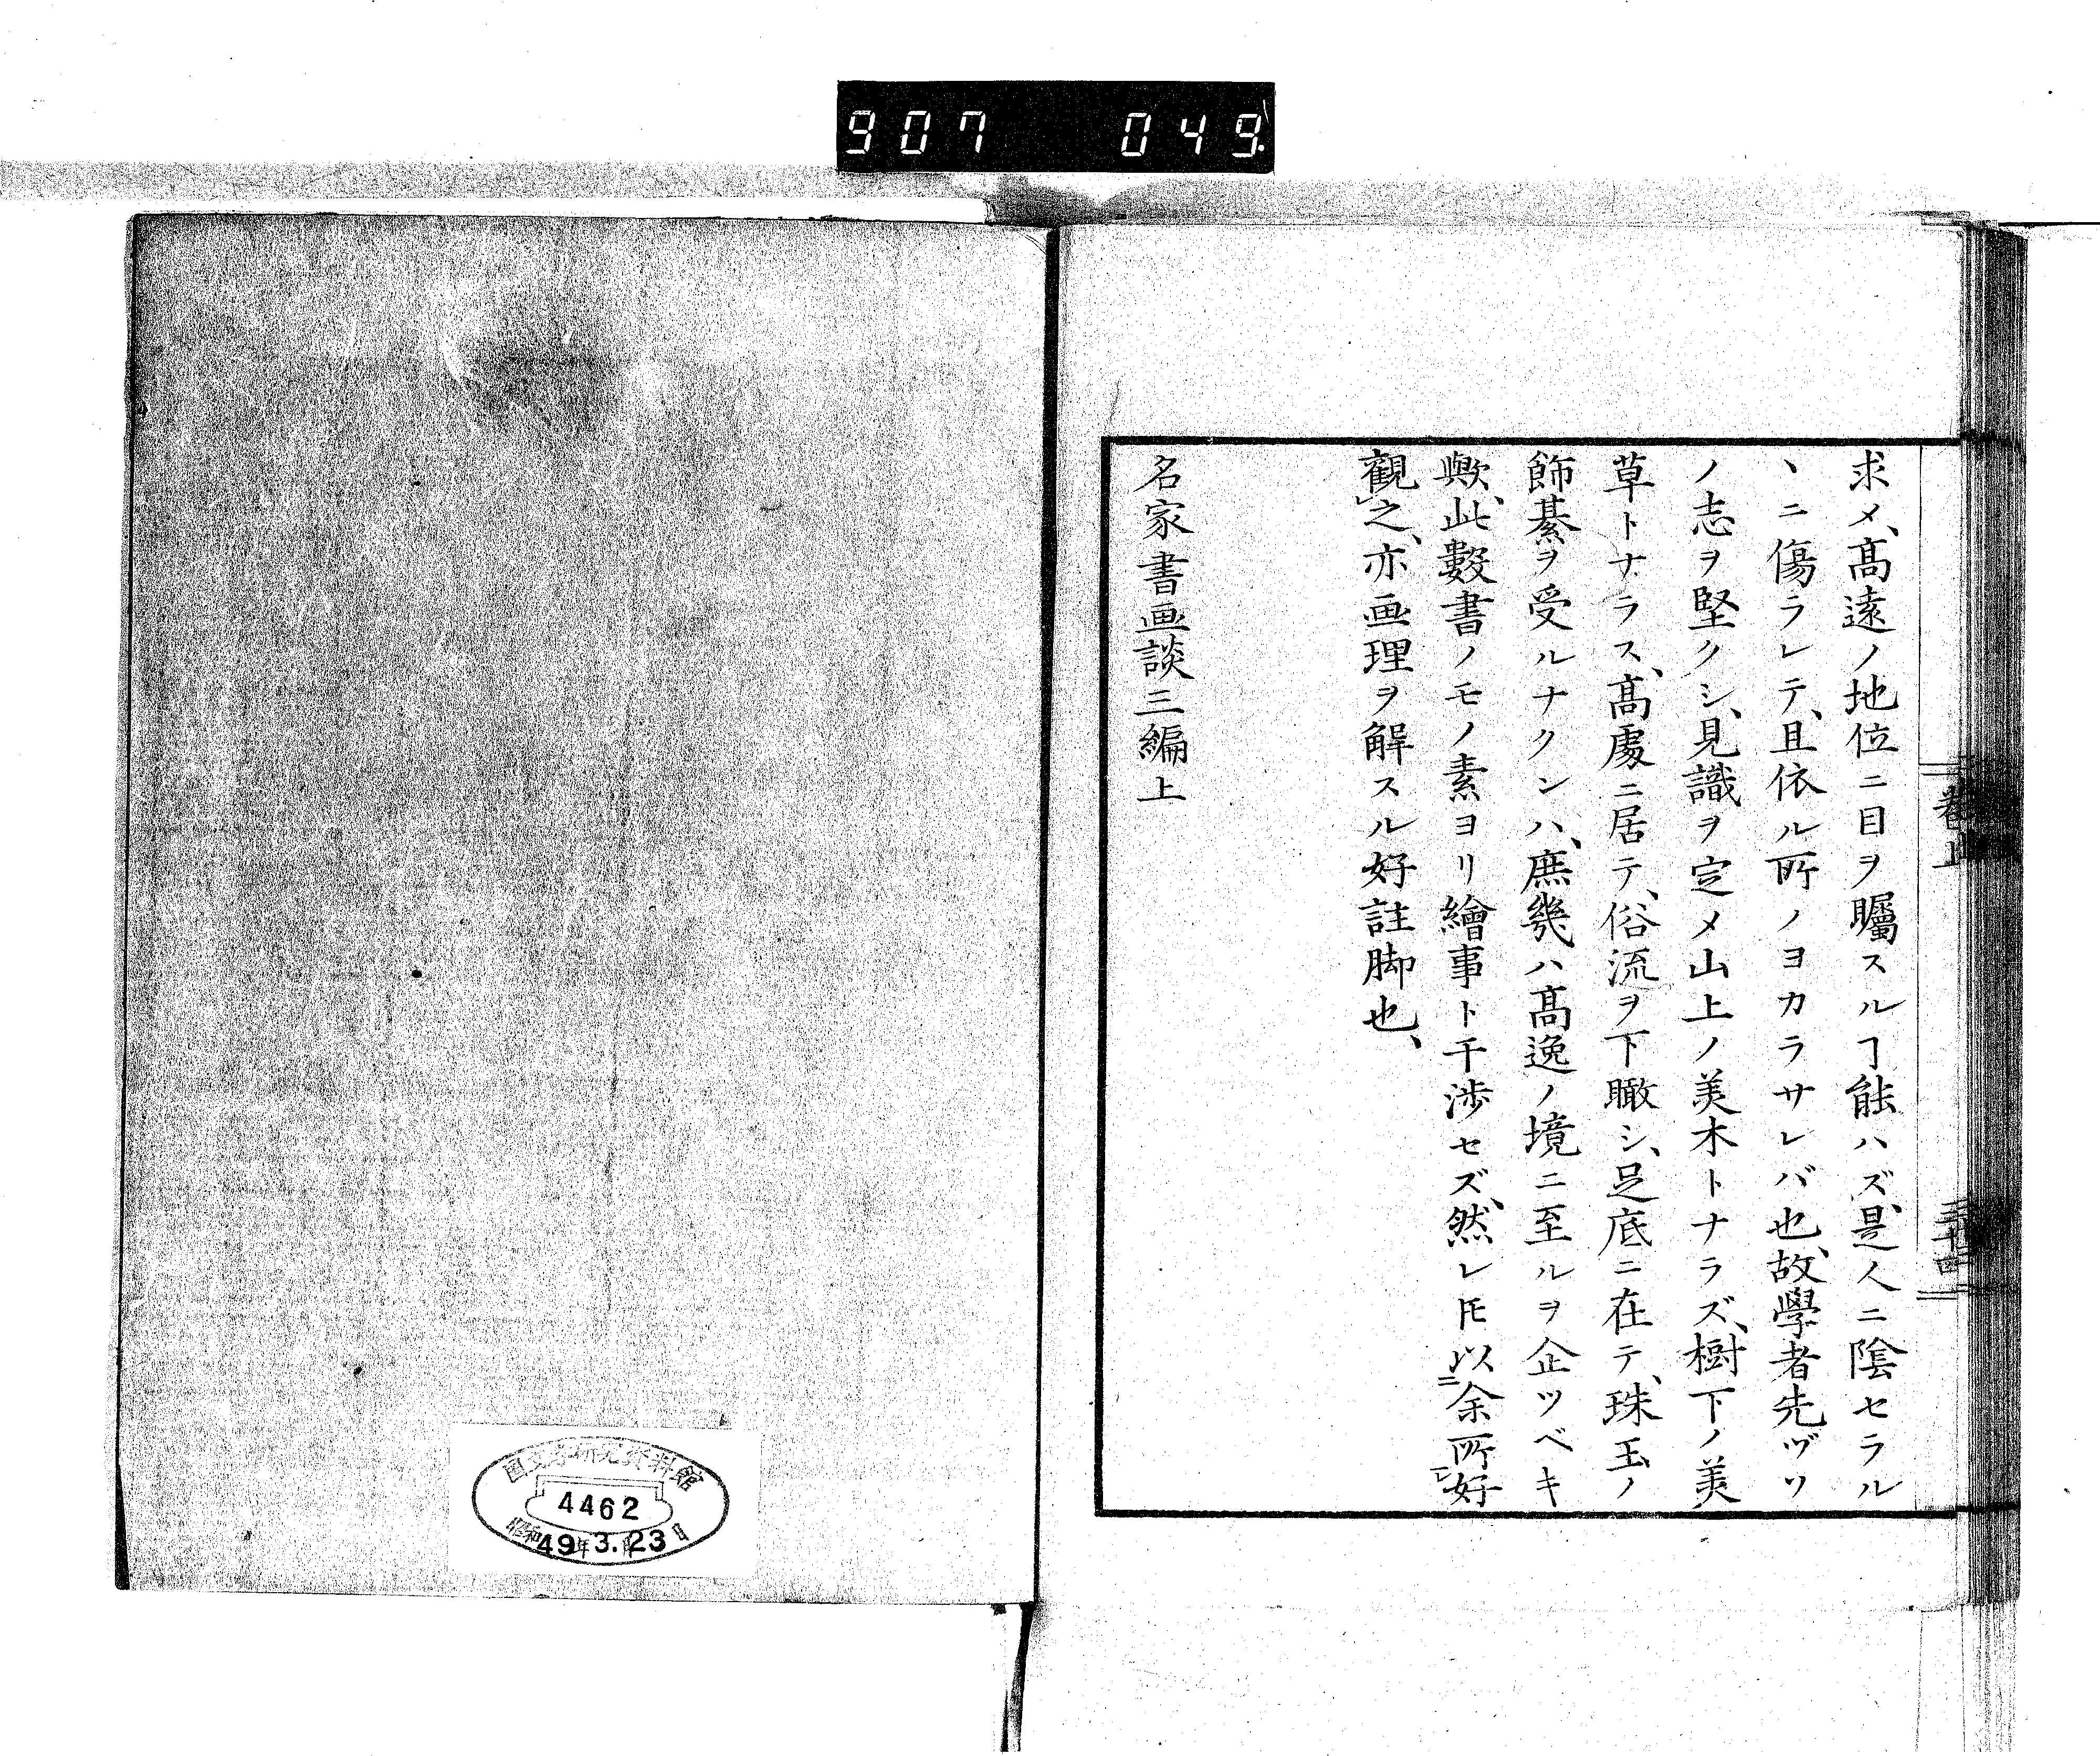 907 049
求メ、髙遠ノ地位ニ目ヲ矚スルヿ能ハズ、是人ニ陰セラル
ヽニ傷ラレテ、且依ル所ノヨカラサレバ也、故學者先ヅソ
ノ志ヲ堅クシ、見識ヲ定メ山上ノ美木トナラズ、樹下ノ美
草トナラス、髙處ニ居テ、俗流ヲ下瞰シ、足底ニ在テ、珠玉ノ
飾綦ヲ受ルナクンハ、庶幾ハ髙逸ノ境ニ至ルヲ企ツベキ
歟、此數書ノモノ素ヨリ繪事ト干渉セズ、然レ𪜈以余所好
觀之、亦画理ヲ解スル好註脚也、
名家書画談三編上
卷上
國文學研究資料館
4462
昭和49年3月23日